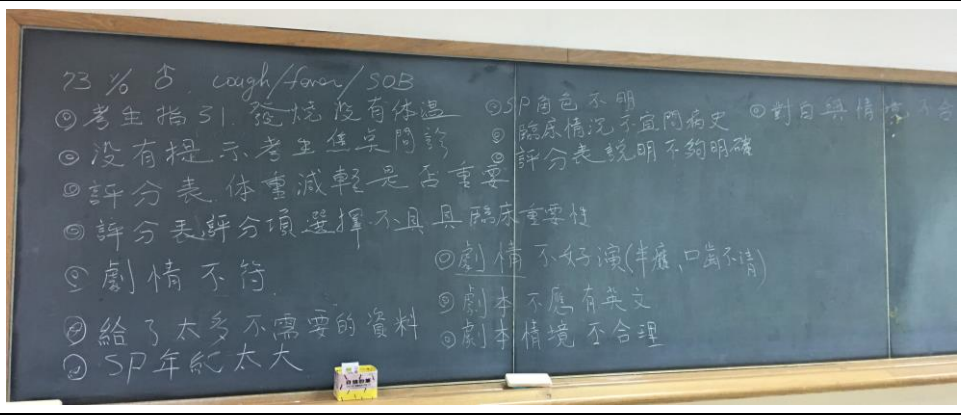 73 y/o ♂ cough/fever/SOB
◎考生指引 發燒沒有体溫
◎沒有提示考生焦桌問診
◎評分表 体重減輕是否重要
◎評分表評分項選擇不具具臨床重要性
◎劇情不符
◎給了太多不需要的資料
◎SP年紀太大
◎SP角色不明
◎臨床情況不宜問病史
◎評分表說明不夠明確
◎劇情不好演(半癱、口齒不清)
◎劇本不應有英文
◎劇本情境不合理
◎對白與情境不合